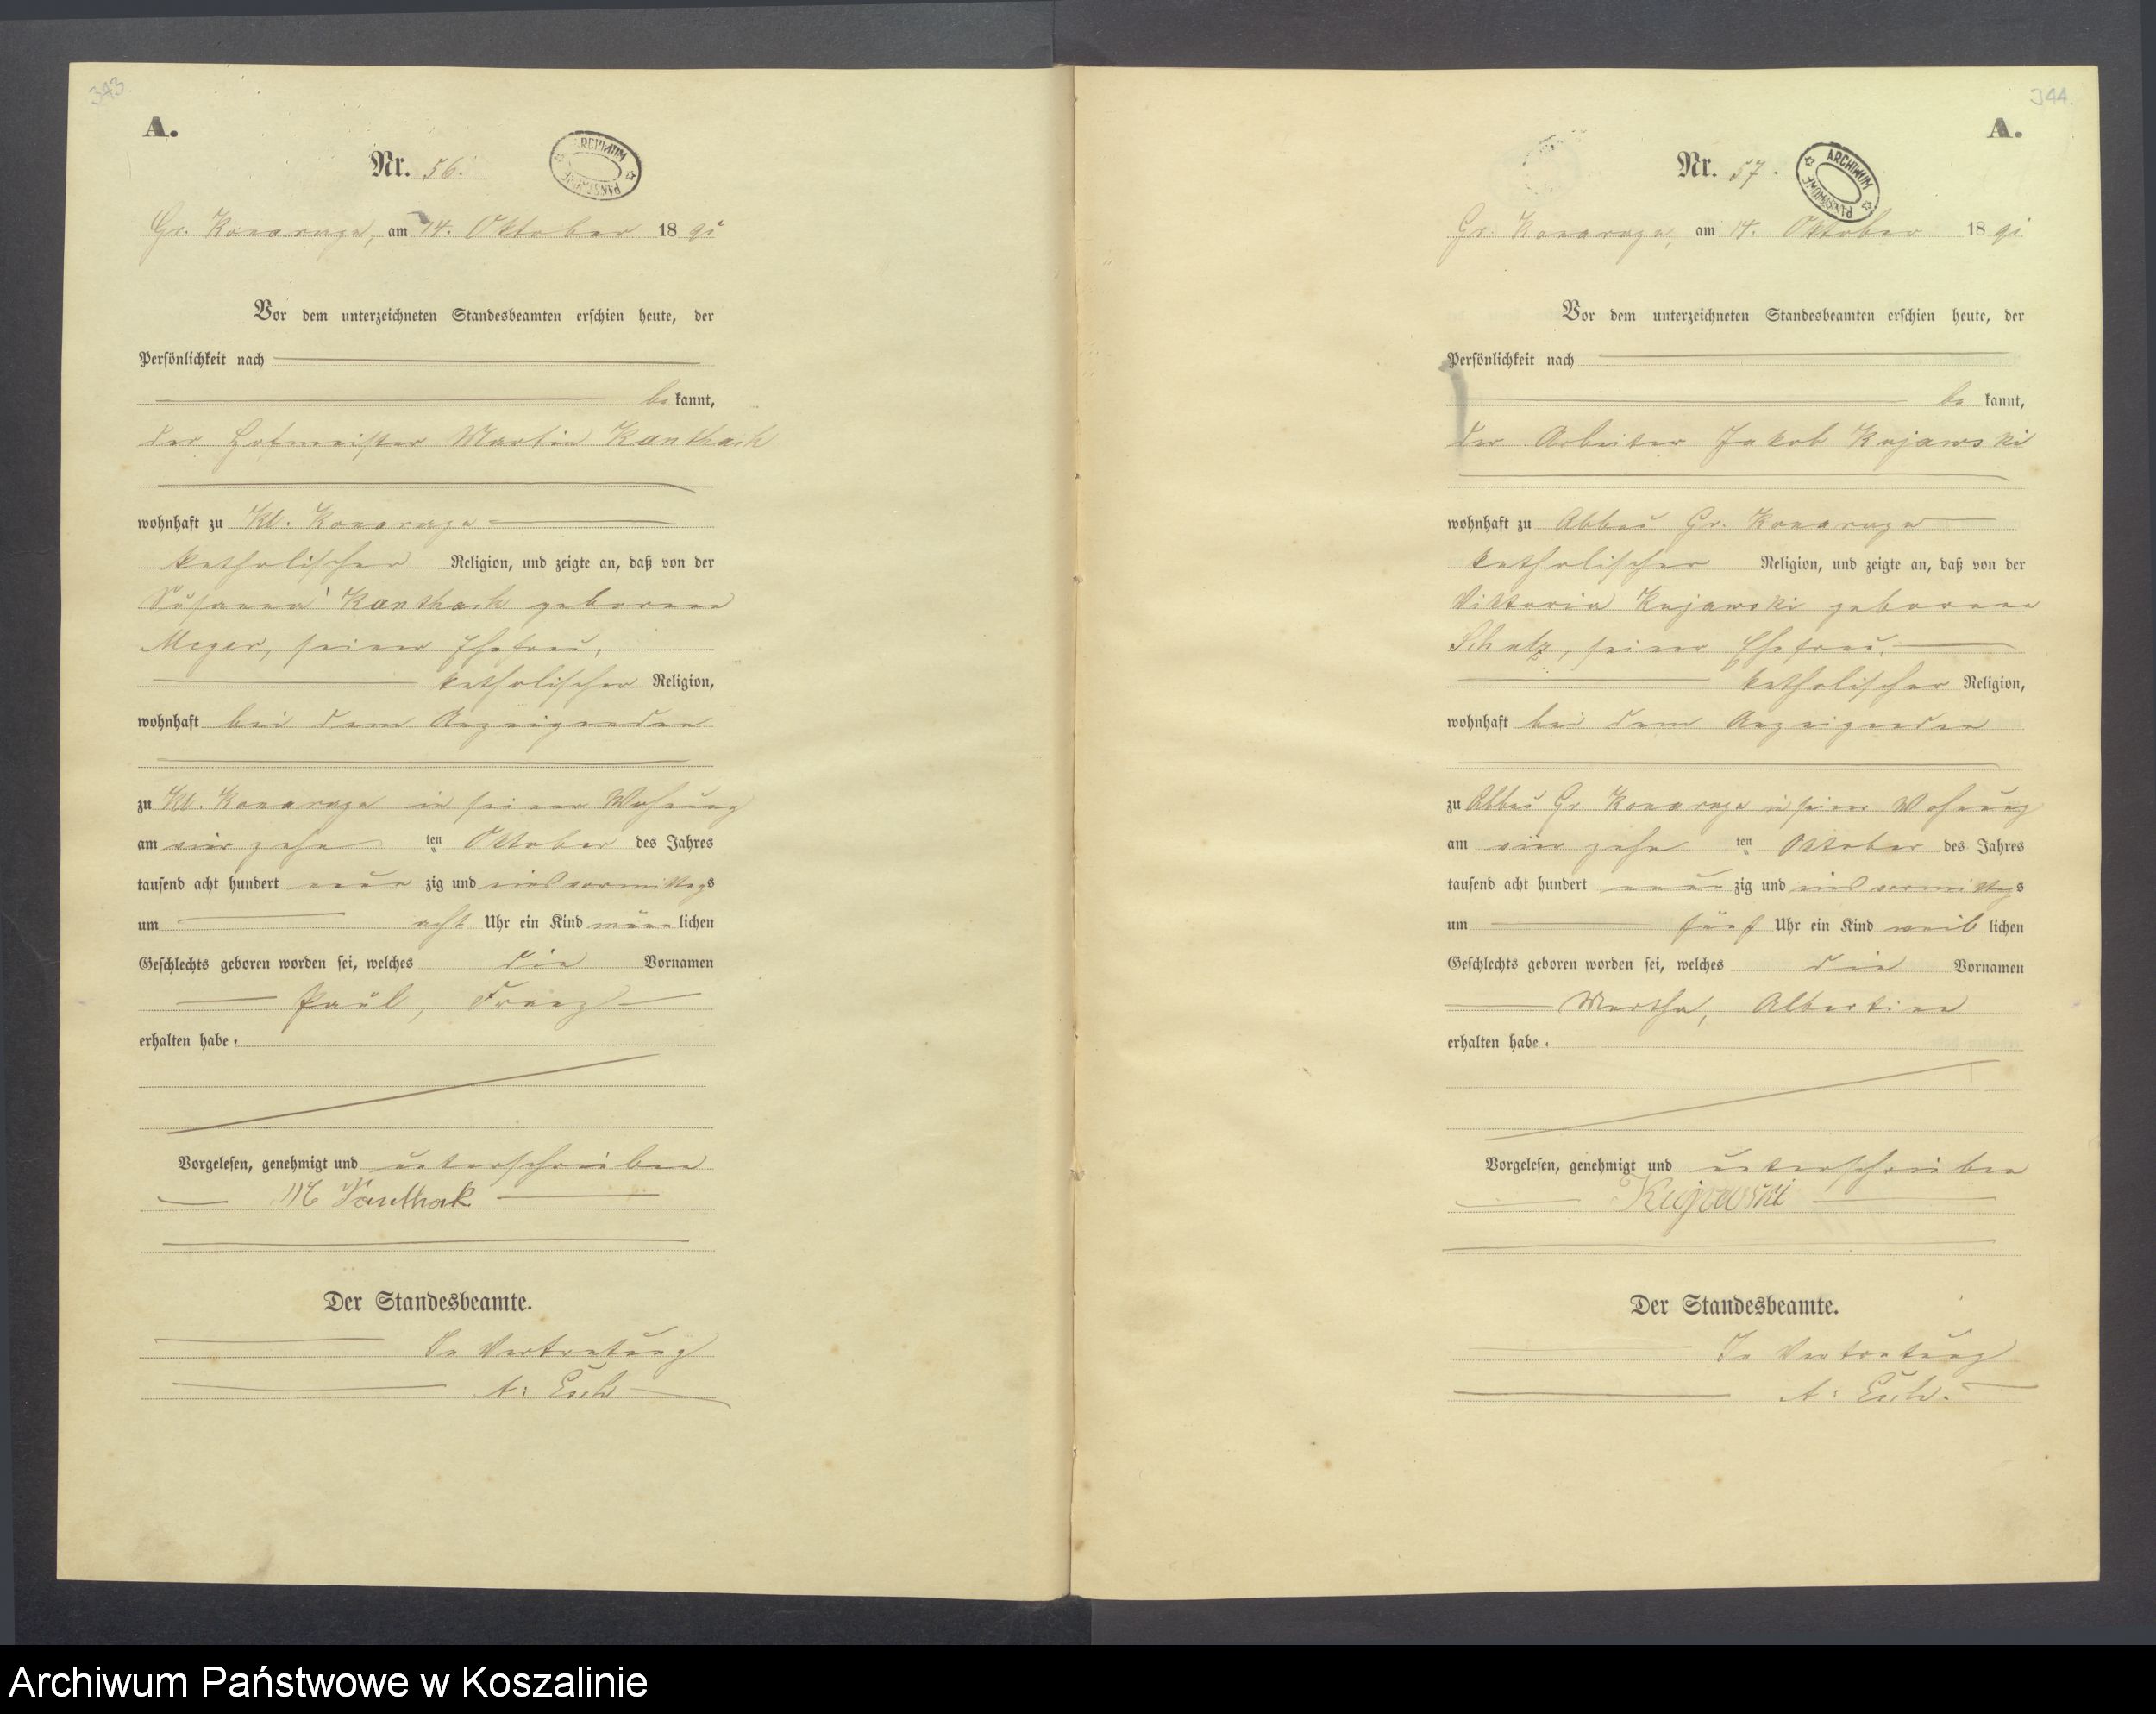 343.
A.
Nr. 56.
ARCHIWUM PAŃSTWOWE
Gr. Konarzyn, am 14. Oktober 1891
Vor dem unterzeichneten Standesbeamten erschien heute, der
Persönlichkeit nach
be kannt,
der Hofmeister Martin Kanthack
wohnhaft zu Kl. Konarzyn
katholischer Religion, und zeigte an, daß von der
Susanna Kanthack geborene
Meger, seiner Ehefrau,
katholischer Religion,
wohnhaft bei dem Anzeigenden
zu Kl. Konarzyn in seiner Wohnung
am vier zehn ten Oktober des Jahres
tausend acht hundert neun zig und eins vormittags
um acht Uhr ein Kind männ lichen
Geschlechts geboren worden sei, welches die Vornamen
Paul, Franz
erhalten habe.
Vorgelesen, genehmigt und unterschrieben
M Kanthak
Der Standesbeamte.
In Vertretung
A: Esch
344.
A.
Nr. 57.
ARCHIWUM PAŃSTWOWE
Gr. Konarzyn, am 14. Oktober 1891
Vor dem unterzeichneten Standesbeamten erschien heute, der
Persönlichkeit nach
be kannt,
der Arbeiter Jakob Kujawski
wohnhaft zu Abbau Gr. Konarzyn
katholischer Religion, und zeigte an, daß von der
Viktoria Kujawski geborene
Schulz, seiner Ehefrau,
katholischer Religion,
wohnhaft bei dem Anzeigenden
zu Abbau Gr. Konarzyn in seiner Wohnung
am vier zehn ten Oktober des Jahres
tausend acht hundert neun zig und eins vormittags
um fünf Uhr ein Kind weib lichen
Geschlechts geboren worden sei, welches die Vornamen
Martha, Albertine
erhalten habe.
Vorgelesen, genehmigt und unterschrieben
Kujawski
Der Standesbeamte.
In Vertretung
A: Esch.
Archiwum Państwowe w Koszalinie